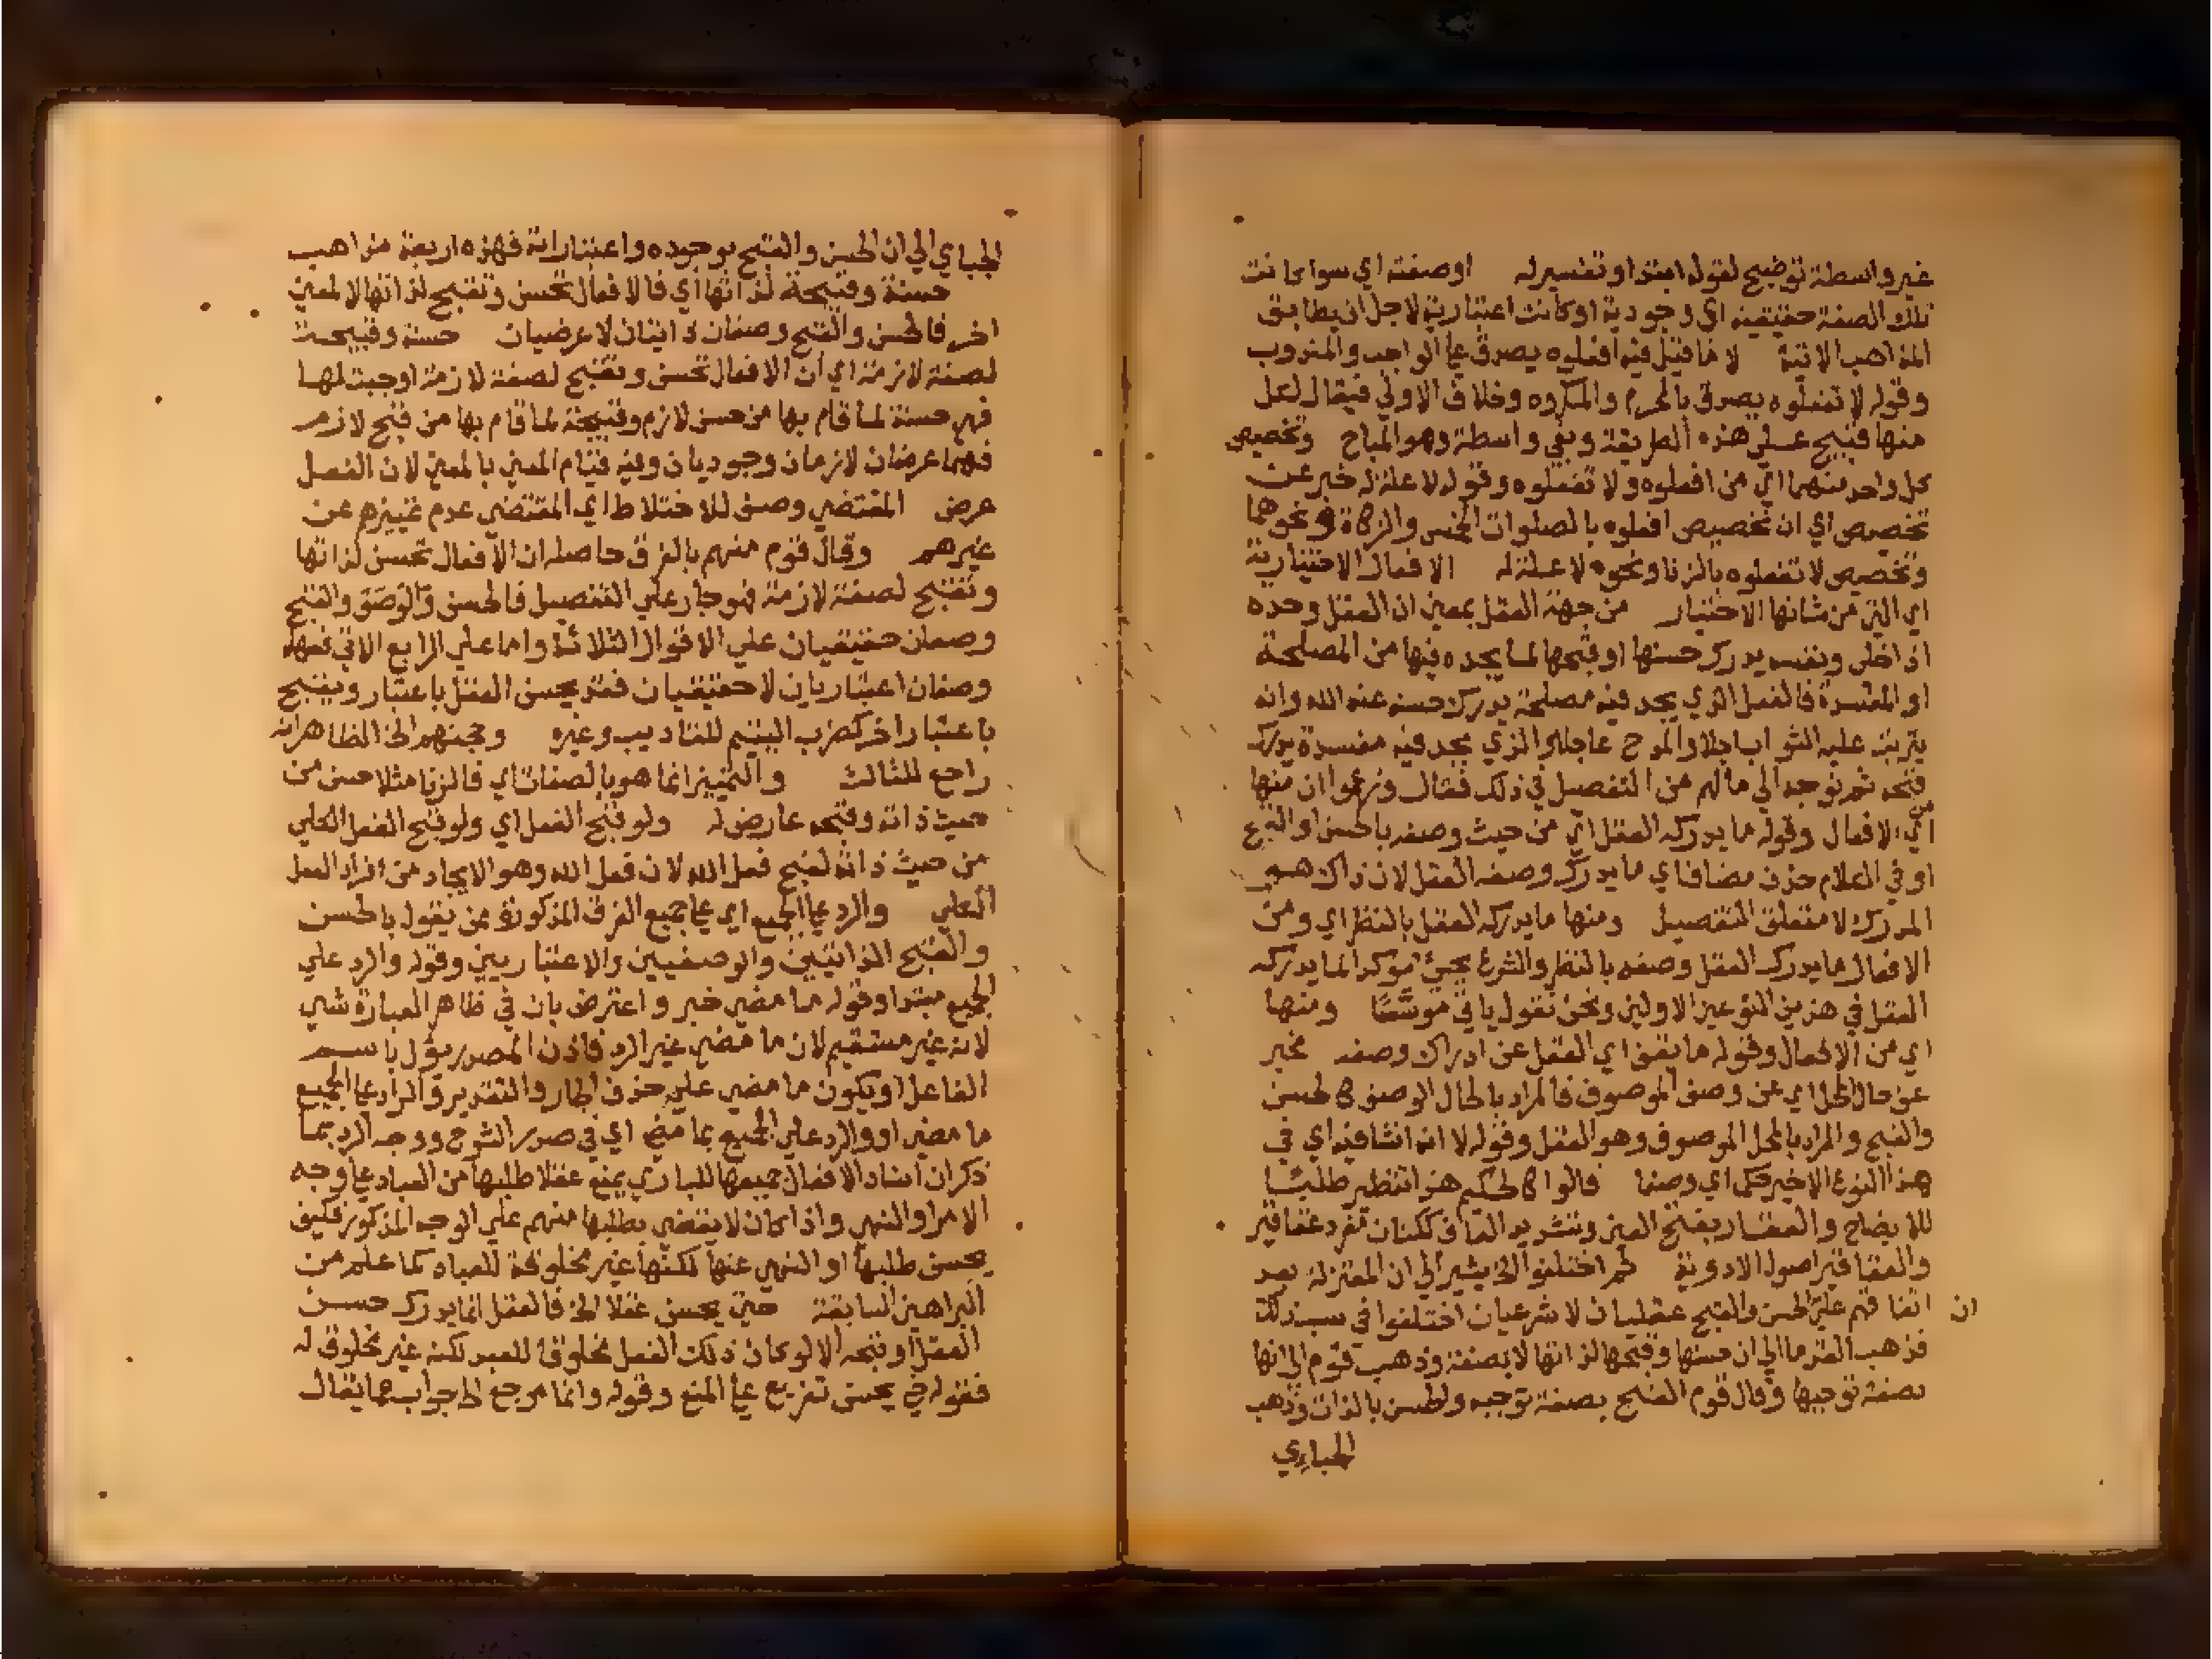 غير واسطة توضيح لقوله ابتدا وتفسير له اوصفته اي سوا كانت
تلك الصفة حقيقية اي وجودية او كانت اعتبارية لاجل ان يطابق
المذاهب الاتية لا ما قيل فيه افعلوه يصدق علي الواجب والمندوب
وقوله لا تفعلوه يصدق بالمحرم والمكروه وخلاف الاولي فيقال لكل
منها قبيح علي هذه الطريقة وبقي واسطة وهو المباح وتخصيص
كل واحد منهما اي من افعلوه ولا تفعلوه وقوله لا علة له خبر عن
تخصيص اي ان تخصيص افعلوه بالصلوات الخمس والزكاة ونحوهما
وتخصيص لا تفعلوه بالزنا ونحوه لا علة له الافعال الاختيارية
اي التي من شانها الاختيار من جهة العقل بمعني ان العقل وحده
اذ اخلي ونفسه يدرك حسنها او قبحها لما يجده فيها من المصلحة
او المفسدة فالفعل الذي يجد فيه مصلحة يدرك حسنه عند الله وانه
يترتب عليه الثواب اجلا والمدح عاجلا والذي يجد فيه مفسدة يدرك
قبحه ثم توجه الي مالهم من التفصيل في ذلك فقال وزعموا ان منها
اي من الافعال وقوله ما يدركه العقل اي من حيث وصفه بالحسن او القبح
او في الكلام حذف مضاف اي ما يدرك وصفه العقل لان ذاك هو
المدرك لا متعلق التفصيل ومنها ما يدركه العقل بالنظر اي ومن
الافعال ما يدرك العقل وصفه بالنظر والشرع يجيء موكدا لما يدركه
العقل في هذين النوعين الاولين ونحن نقول ياتي موسسا ومنها
اي من الافعال وقوله ما يقف اي العقل عن ادراك وصفه مخبر
عن حال المحل اي عن وصف الموصوف فالمراد بالحال الوصف كالحسن
والقبح والمراد بالمحل الموصوف وهو الفعل وقوله لا انه انشا فيه اي في
هذا النوع الاخير حكما اي وصفا قالوا كالحكيم هذا تنظير طلبا
للايضاح والعقار بفتح العين وتشديد القاف ككتان مفرد عقاقير
والعقاقير اصول الادوية ثم اختلفوا الخ يشير الي ان المعتزلة بعد
اتفاقهم علي ان الحسن والقبح عقليان لا شرعيان اختلفوا في سبب ذلك
فذهب القدما الي ان حسنها وقبحها لذاتها لا بصفة وذهب قوم الي انها
بصفة توجبها وقال قوم القبيح بصفة توجبه والحسن بالذات وذهب
الجباءي
الجباي الي ان الحسن والقبح بوجوده واعتبارات فهذه اربعة مذاهب
حسنة وقبيحة لذاتها اي فالافعال تحسن وتقبح لذاتها لا لمعني
اخر فالحسن والقبح وصفان ذاتيان لا عرضيان حسنة وقبيحة
لصفة لازمة اي ان الافعال تحسن وتقبح لصفة لازمة اوجبت لها
فهي حسنة لما قام بها من حسن لازم وقبيحة لما قام بها من قبح لازم
فهما عرضان لازمان وجوديان وفيه قيام المعني بالمعني لان الفعل
عرض المقتضي وصف للاختلاط اي المقتضي عدم تمييزهم عن
غيرهم وقال قوم منهم بالفرق حاصله ان الافعال تحسن لذاتها
وتقبح لصفة لازمة فهو جار علي التفصيل فالحسن والوصف والقبح
وصفان حقيقيان علي الاقوال الثلاثة واما علي الرابع الاتي فهما
وصفان اعتباريان لا حقيقيان فقد يحسن الفعل باعتبار ويقبح
باعتبار اخر كضرب اليتيم للتاديب وغيره وحجتهم الخ الظاهر انه
راجع للثالث والتمييز انما هو بالصفات اي فالزنا مثلا حسن من
حيث ذاته وقبحه عارض له ولو قبح الفعل اي ولو قبح الفعل الكلي
من حيث ذاته لقبح فعل الله لان فعل الله وهو الايجاد من افراد الفعل
الكلي والرد علي الجميع اي علي جميع الفرق المذكورة ممن يقول بالحسن
والقبح الذاتيين والوصفيين والاعتباريين وقوله والرد علي
الجميع مبتدا وقوله ما مضي خبر واعترض بان في ظاهر العبارة شي
لانه غير مستقيم لان ما مضي غير الرد فاذن المصدر يؤل باسم
الفاعل او يكون ما مضي علي حذف الجار والتقدير والراد علي الجميع
ما مضي او والرد علي الجميع بما مضي اي في صدر الشرح ووجه الرد بما
ذكر ان اسناد الافعال جميعها للباري يمنع عقلا طلبها من العباد علي وجه
الامر او النهي واذا كان لا يقضي بطلبها منهم علي الوجه المذكور فكيف
يحسن طلبها او النهي عنها لكنها غير مخلوقة للعباد كما علم من
البراهين السابقة حتي يحسن عقلا الخ فالعقل انما يدرك حسن
الفعل او قبحه الا لو كان ذلك الفعل مخلوقا للعبد لكنه غير مخلوق له
فقوله حتي يحسن تفريع علي المنع وقوله وانما مرجع الخ جواب عما يقال